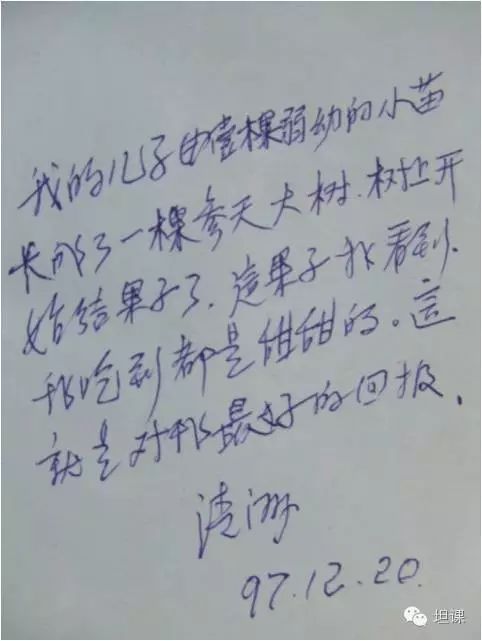 我的儿子由壹棵弱幼的小苗
长成了一棵参天大树.树上开
始结果子了.這果子我看到.
我吃到都是甜甜的。這
就是对我最好的回报.
清渺
97.12.20.
坦课